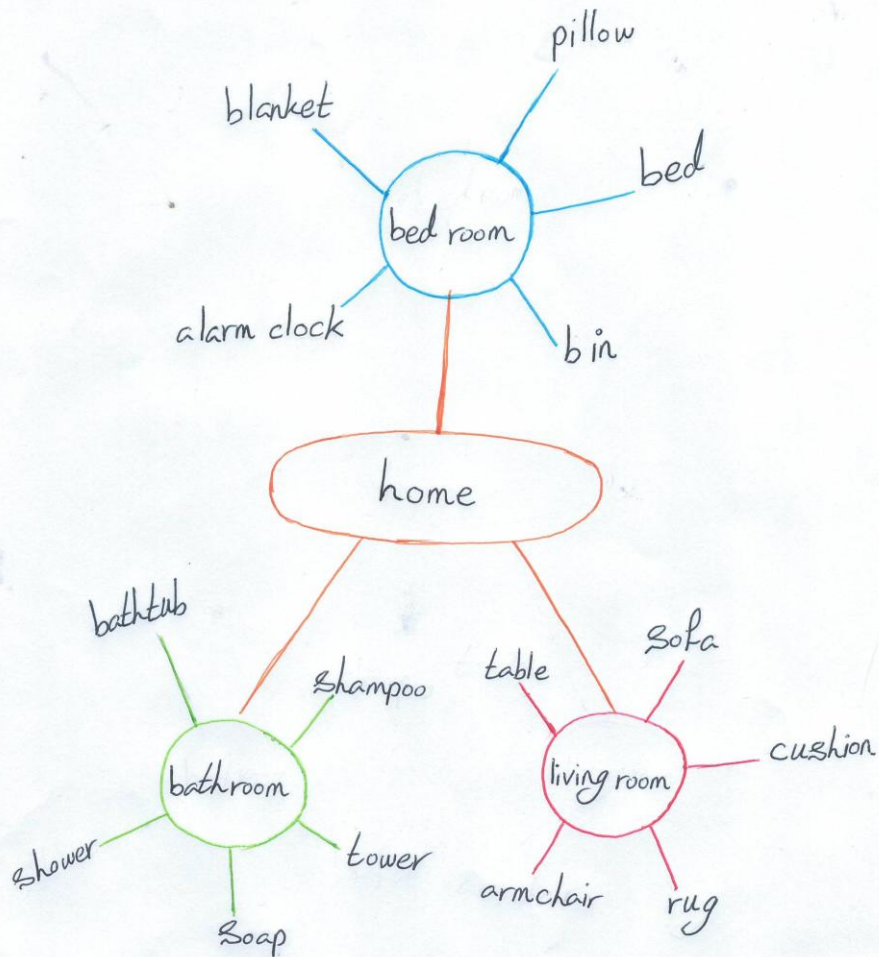 pillow
blanket
bed
bed room
alarm clock
bin
home
bathtub
shampoo
bathroom
shower
tower
soap
sofa
table
cushion
living room
armchair
rug